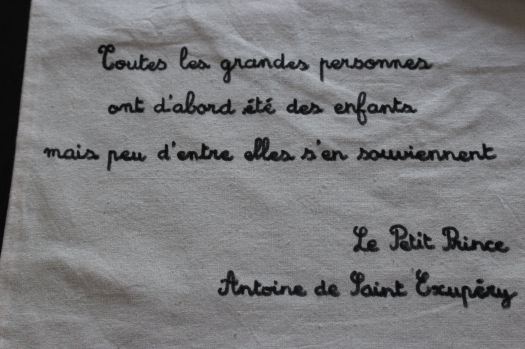 Toutes les grandes personnes
ont d'abord été des enfants
mais peu d'entre elles s'en souviennent
Le Petit Prince
Antoine de Saint Exupéry